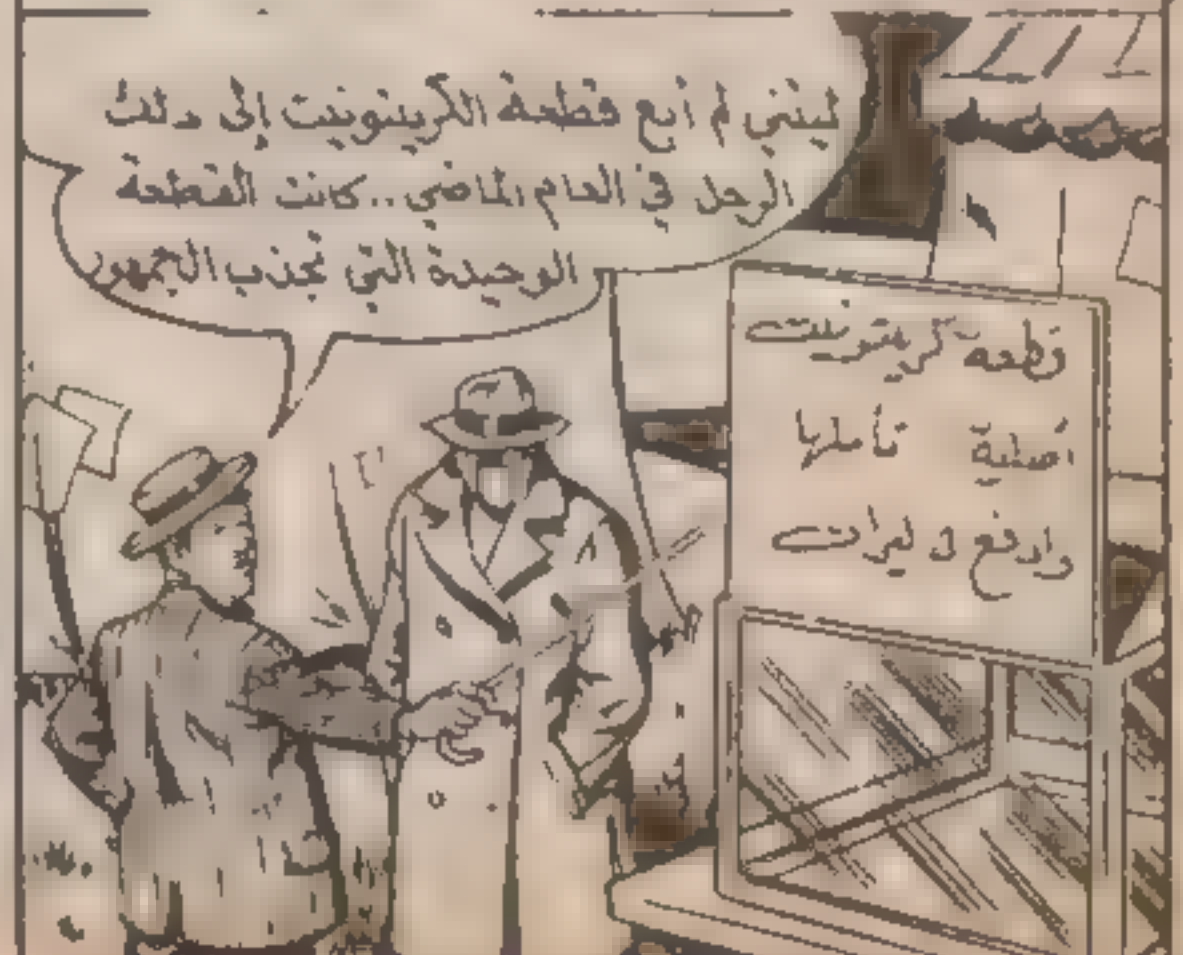 ليتني لم أبع قطعة الكريبتونيت إلى ذلك
الرجل في العام الماضي .. كانت القطعة
الوحيدة التي تجذب الجمهور
قطعه كريبتونيت
أصلية تأملها
وادفع ٥ ليرات